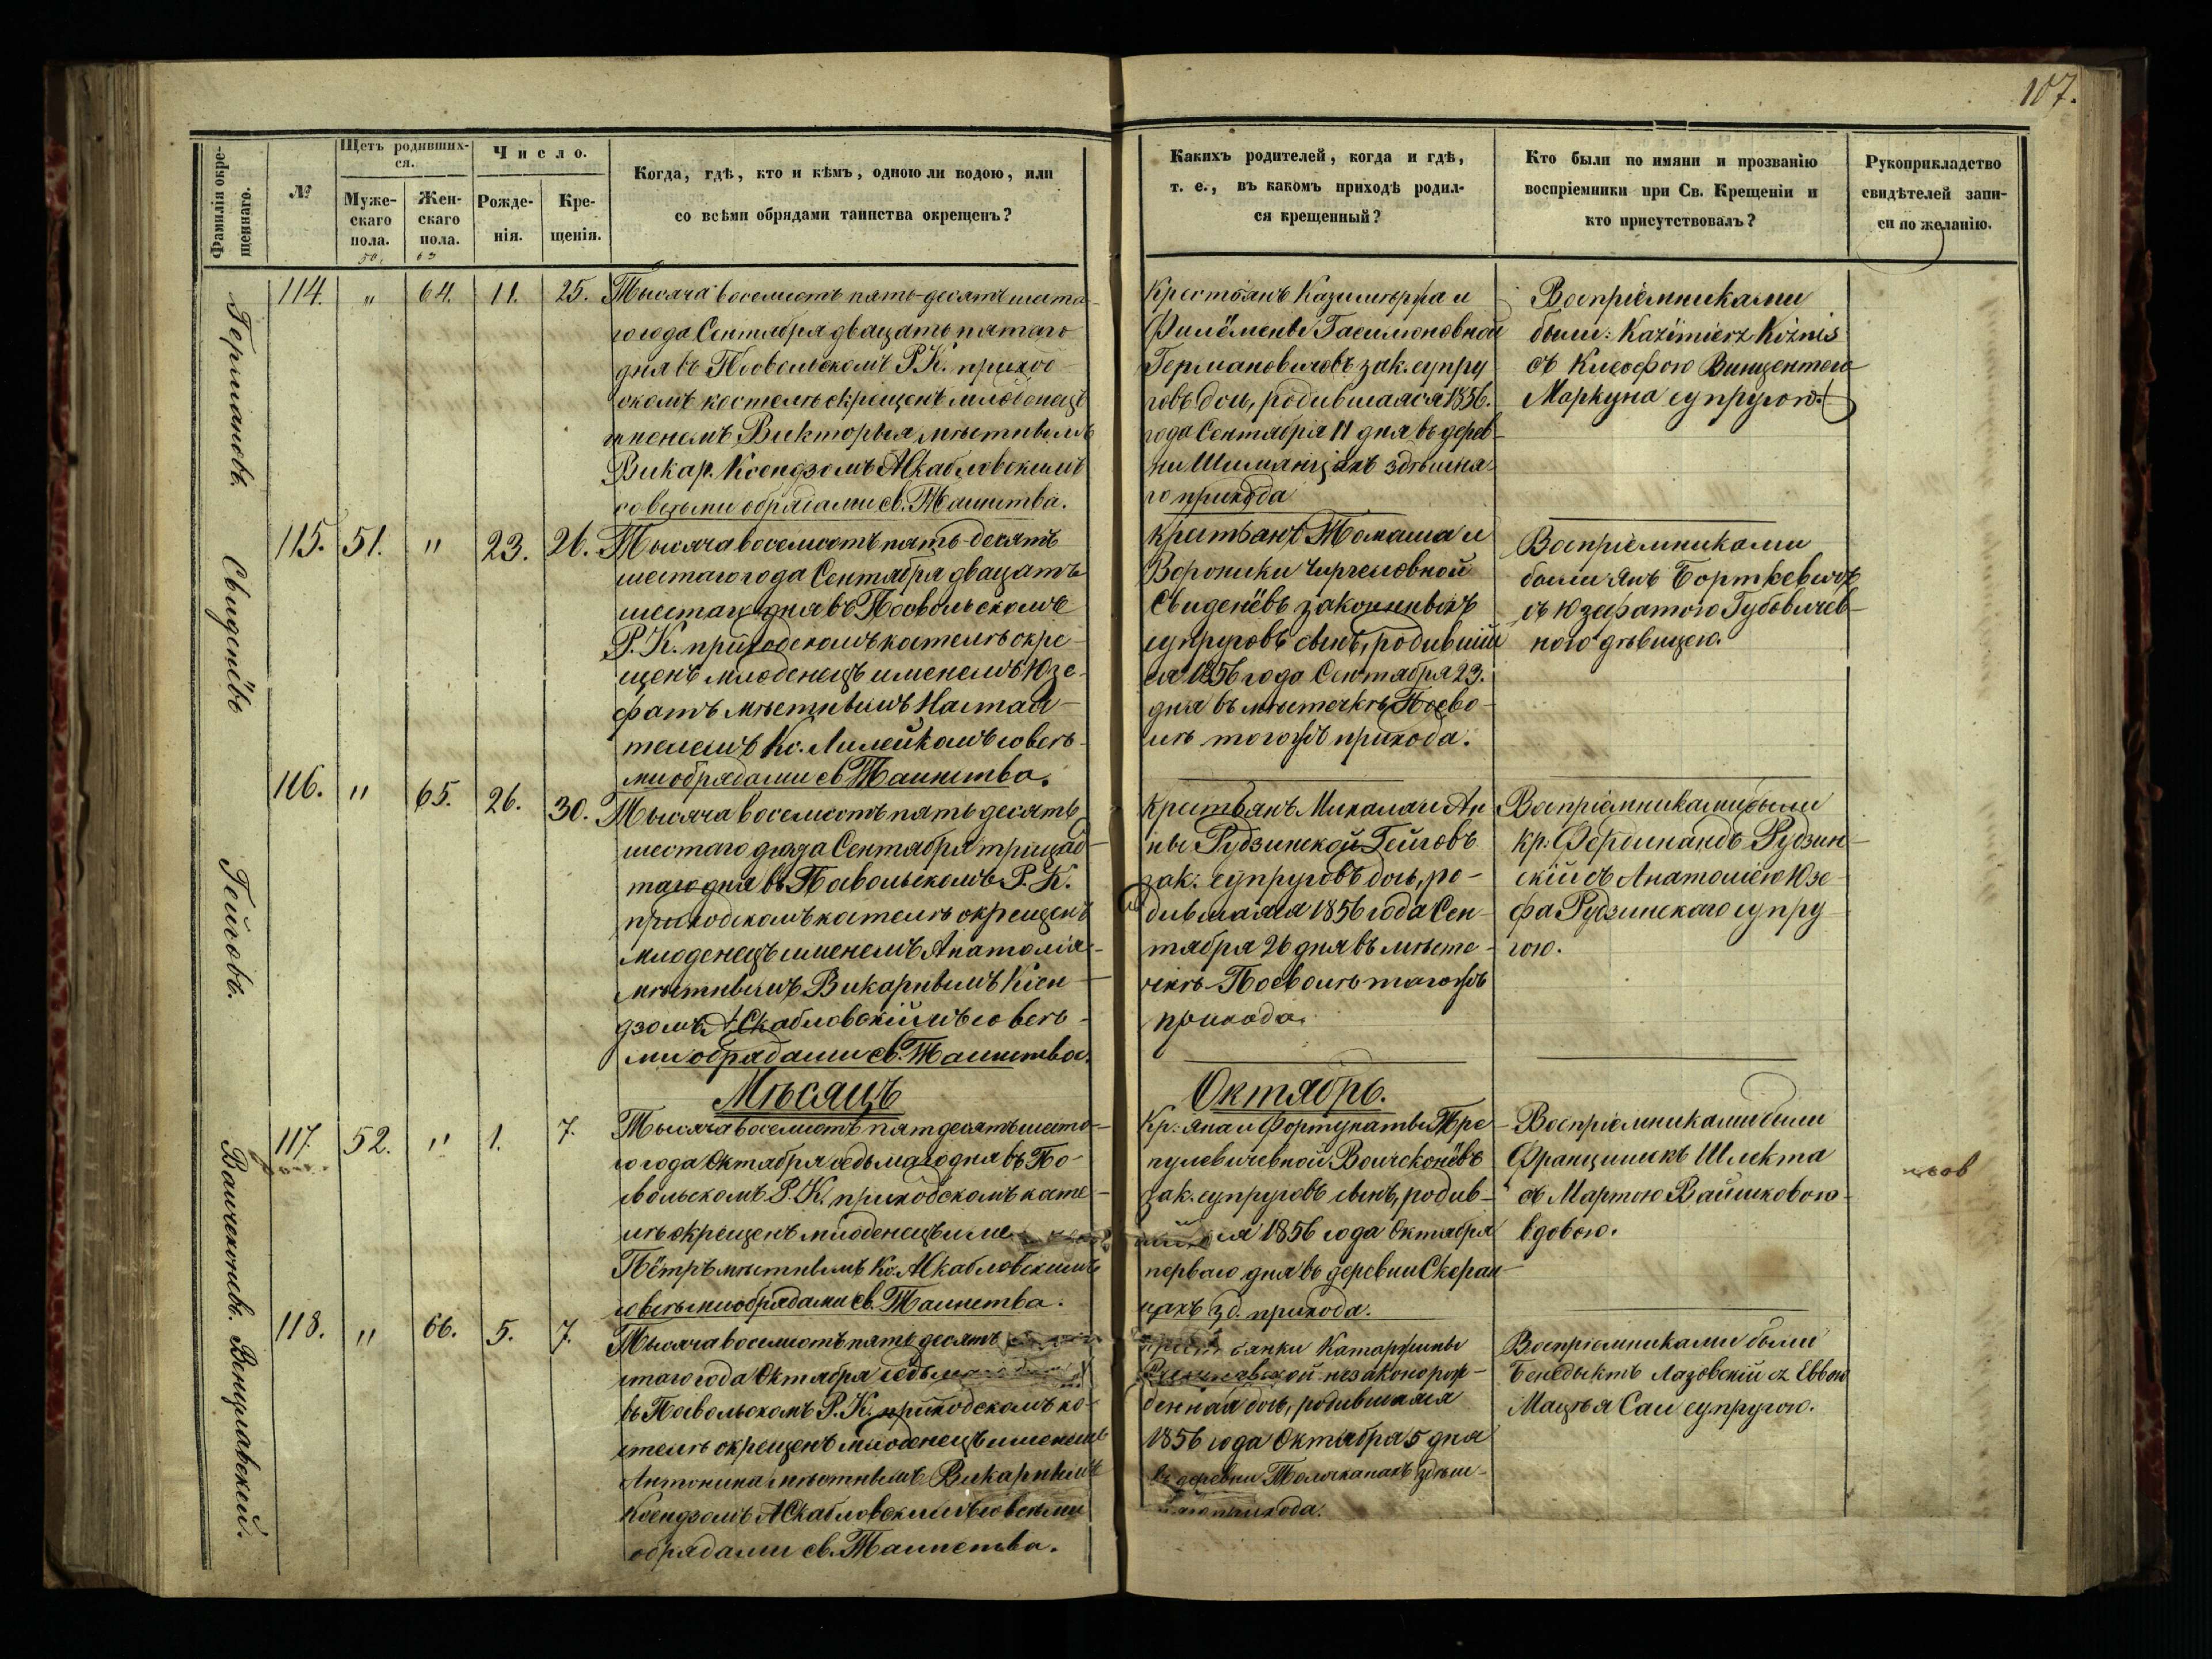 107.
Фамилія окре-
щеннаго.
№
Щетъ родивших-
ся.
Муже-
скаго
пола.
Жен-
скаго
пола.
Число.
Рожде-
нія.
Кре-
щенія.
Когда, гдѣ, кто и кѣмъ, одною ли водою, или
со всѣми обрядами таинства окрещенъ?
Какихъ родителей, когда и гдѣ,
т. е., въ какомъ приходѣ родил-
ся крещенный?
Кто были по имяни и прозванію
воспріемники при Св. Крещеніи и
кто присутствовалъ?
Рукоприкладство
свидѣтелей запи-
си по желанію.
50. 63
Германовъ.
114. " 64. 11. 25.
Тысяча восемсотъ пять-десятъ шеста-
го года Сентября двацать пятаго
дня въ Посвольскомъ Р. К. приход-
скомъ костелѣ окрещенъ млоденецъ
именемъ Викторыя мѣстнымъ
Викар. Ксендзомъ А Скабловскимъ
со всѣми обрядами св. Таинства.
Крестьянъ Казимѣржа и
Филёмены Гасилюновной
Германовичовъ зак. супру
говъ дочь, родившаяся 1856.
года Сентября 11 дня въ дерев-
ни Шиманцахъ здѣшня-
го прихода
Воспріемниками
были: Kazimierz Kiźnis
съ Клеофою Винцентего
Маркуна супругою.
Свиденёвъ
115. 51. " 23. 26.
Тысяча восемсотъ пять-десятъ
шестаго года Сентября двацатъ
шестаго дня въ Посвольскомъ
Р. К. приходскомъ кателѣ окре-
щенъ млоденецъ именемъ Юзе-
фатъ мѣстнымъ Настоя-
телемъ Кс. Лилейкомъ со всѣ-
ми обрядами св Таинства.
крестьянъ Томаша и
Вероники Чиргелювной
Свиденёвъ законныхъ
супруговъ сынъ, родившій
ся 1856 года Сентября 23.
дня въ мѣстечкѣ Посво-
лѣ тогожъ прихода.
Воспріемниками
были Янъ Борткевичъ
съ Юзафатою Губовичев-
ною дѣвицею.
Гейговъ.
116. " 65. 26. 30.
Тысяча восемсотъ пять десятъ
шестаго года Сентября трицад-
таго дня въ Посвольскомъ Р. К.
приходскомъ кателѣ окрещенъ
млоденецъ именемъ Анатолія
мѣстнымъ Викарнымъ Ксен-
дзомъ А Скабловскіимъ со всѣ-
ми обрядами св. Таинства.
крестьянъ Михала и Ан
ны Рудзинской Гейговъ
зак. супруговъ дочь, ро-
дившаяся 1856 года Сен-
тября 26 дня въ мѣсте-
чкѣ Посволѣ тагожъ
прихода.
Воспріемниками были
кр. Фердинандъ Рудзин-
скій съ Анатоліею Юзе-
фа Рудзинскаго супру
гою.
Мѣсяцъ Октябрь.
Ванчеконёвъ.
117 52. " 1. 7.
Тысяча восемсотъ пятдесятъ шеста-
го года Октября седьмаго дня въ По-
свольскомъ Р. К. приходскомъ кате-
лѣ окрещенъ млоденецъ име
Пётръ мѣстнымъ Кс. А Скабловскимъ
со всѣми обрядами св. Таинства.
Кр. Яна и Фортунаты Тре-
пулевичевной Воичеконёвъ
зак. супруговъ сынъ, родив-
ся 1856 года Октября
перваго дня въ деревни Скеран-
цахъ зд. прихода.
Воспріемниками были
Францишекъ Шлекта
съ Мартою Вайшковою
вдовою.
Венцлавской.
118. " 66. 5. 7.
Тысяча восемсотъ пять десятъ
стаго года Октября седьма
въ Посвольскомъ Р. К. приходскомъ ко-
стелѣ окрещенъ млоденецъ именемъ
Антонина мѣстнымъ Викарнымъ
Ксендзомъ А Скабловскимъ со всѣми
обрядами св. Таинства.
крестьянки Катаржины
незаконорож-
денная дочь, родившаяся
1856 года Октября 5 дня
въ деревни Толочканахъ здѣш-
няго прихода.
Воспріемниками были
Бенедыктъ Лазовскій съ Еввою
Мацѣя Саи супругою.